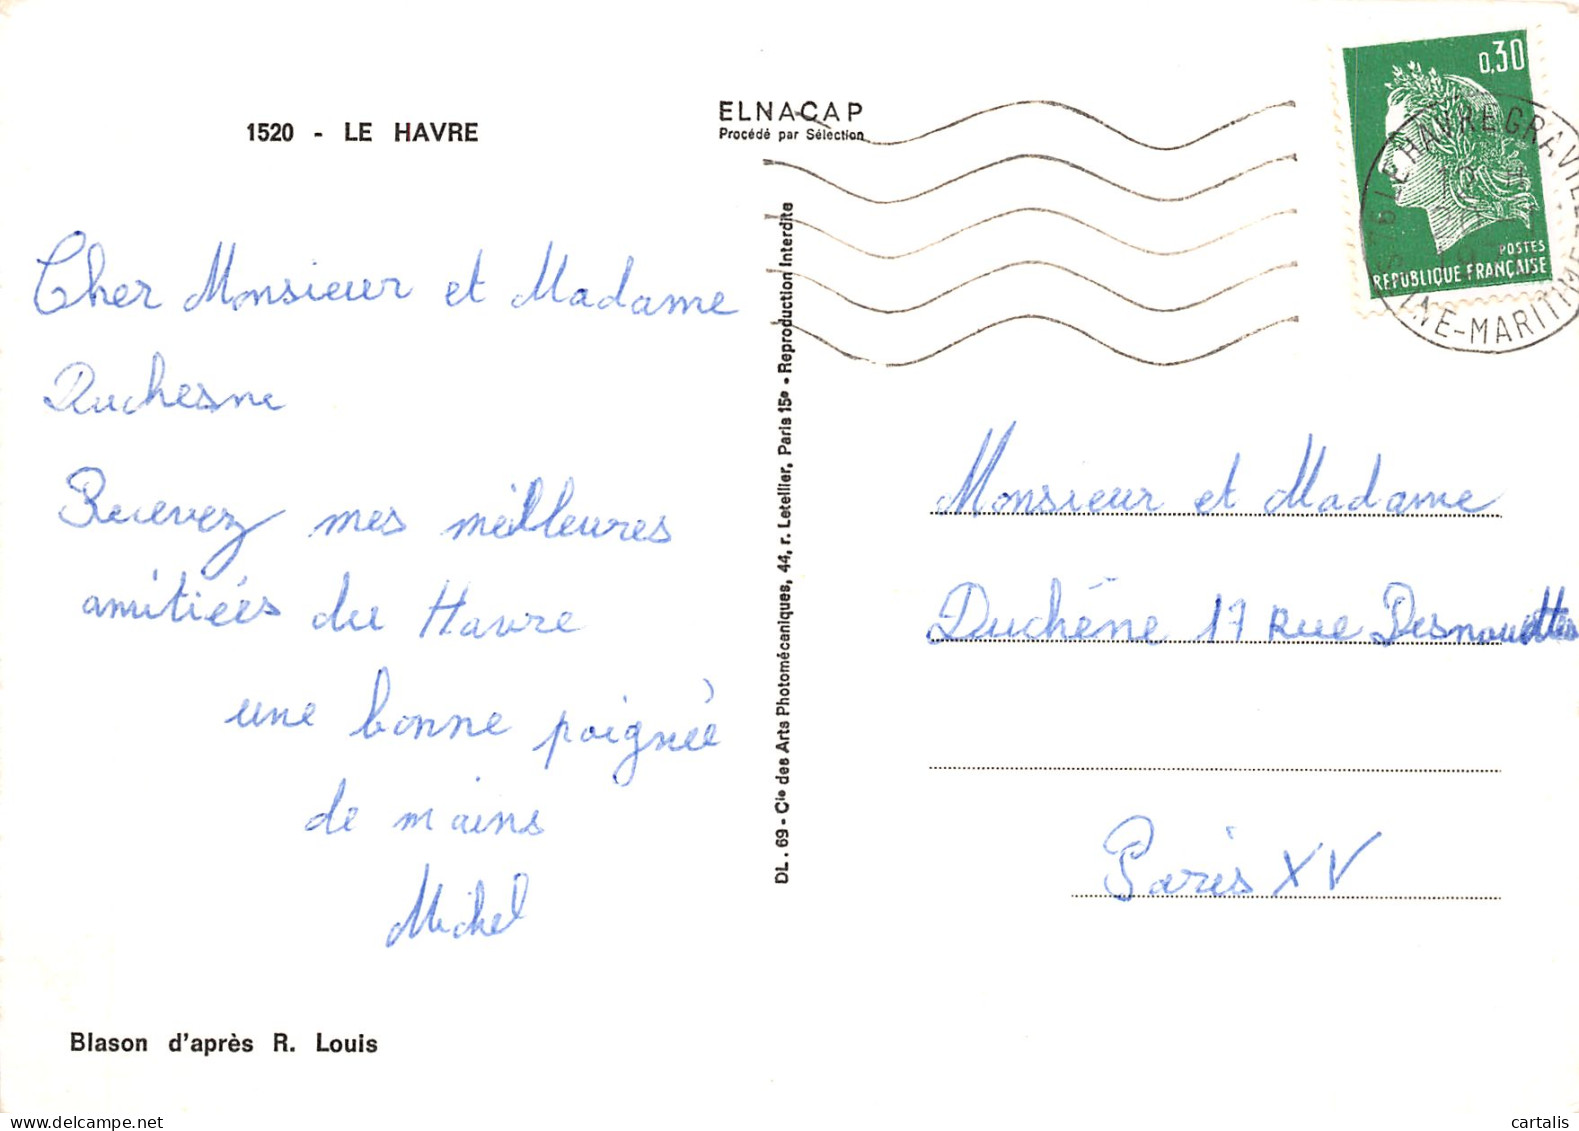 1520 - LE HAVRE
ELNACAP
Procédé par Sélection
0,30
POSTES
REPUBLIQUE FRANÇAISE
76 LE HAVRE GRAVILLE
SEINE-MARITIME
Cher Monsieur et Madame
Duchesne
Recevez mes meilleures
amitiées du Havre
une bonne poignée
de mains
Michel
Blason d'après R. Louis
DL. 69 - Cie des Arts Photomécaniques, 44, r. Letellier, Paris 15e - Reproduction Interdite
Monsieur et Madame
Duchêne 17 Rue Desnouettes
Paris XV
www.delcampe.net
cartalis